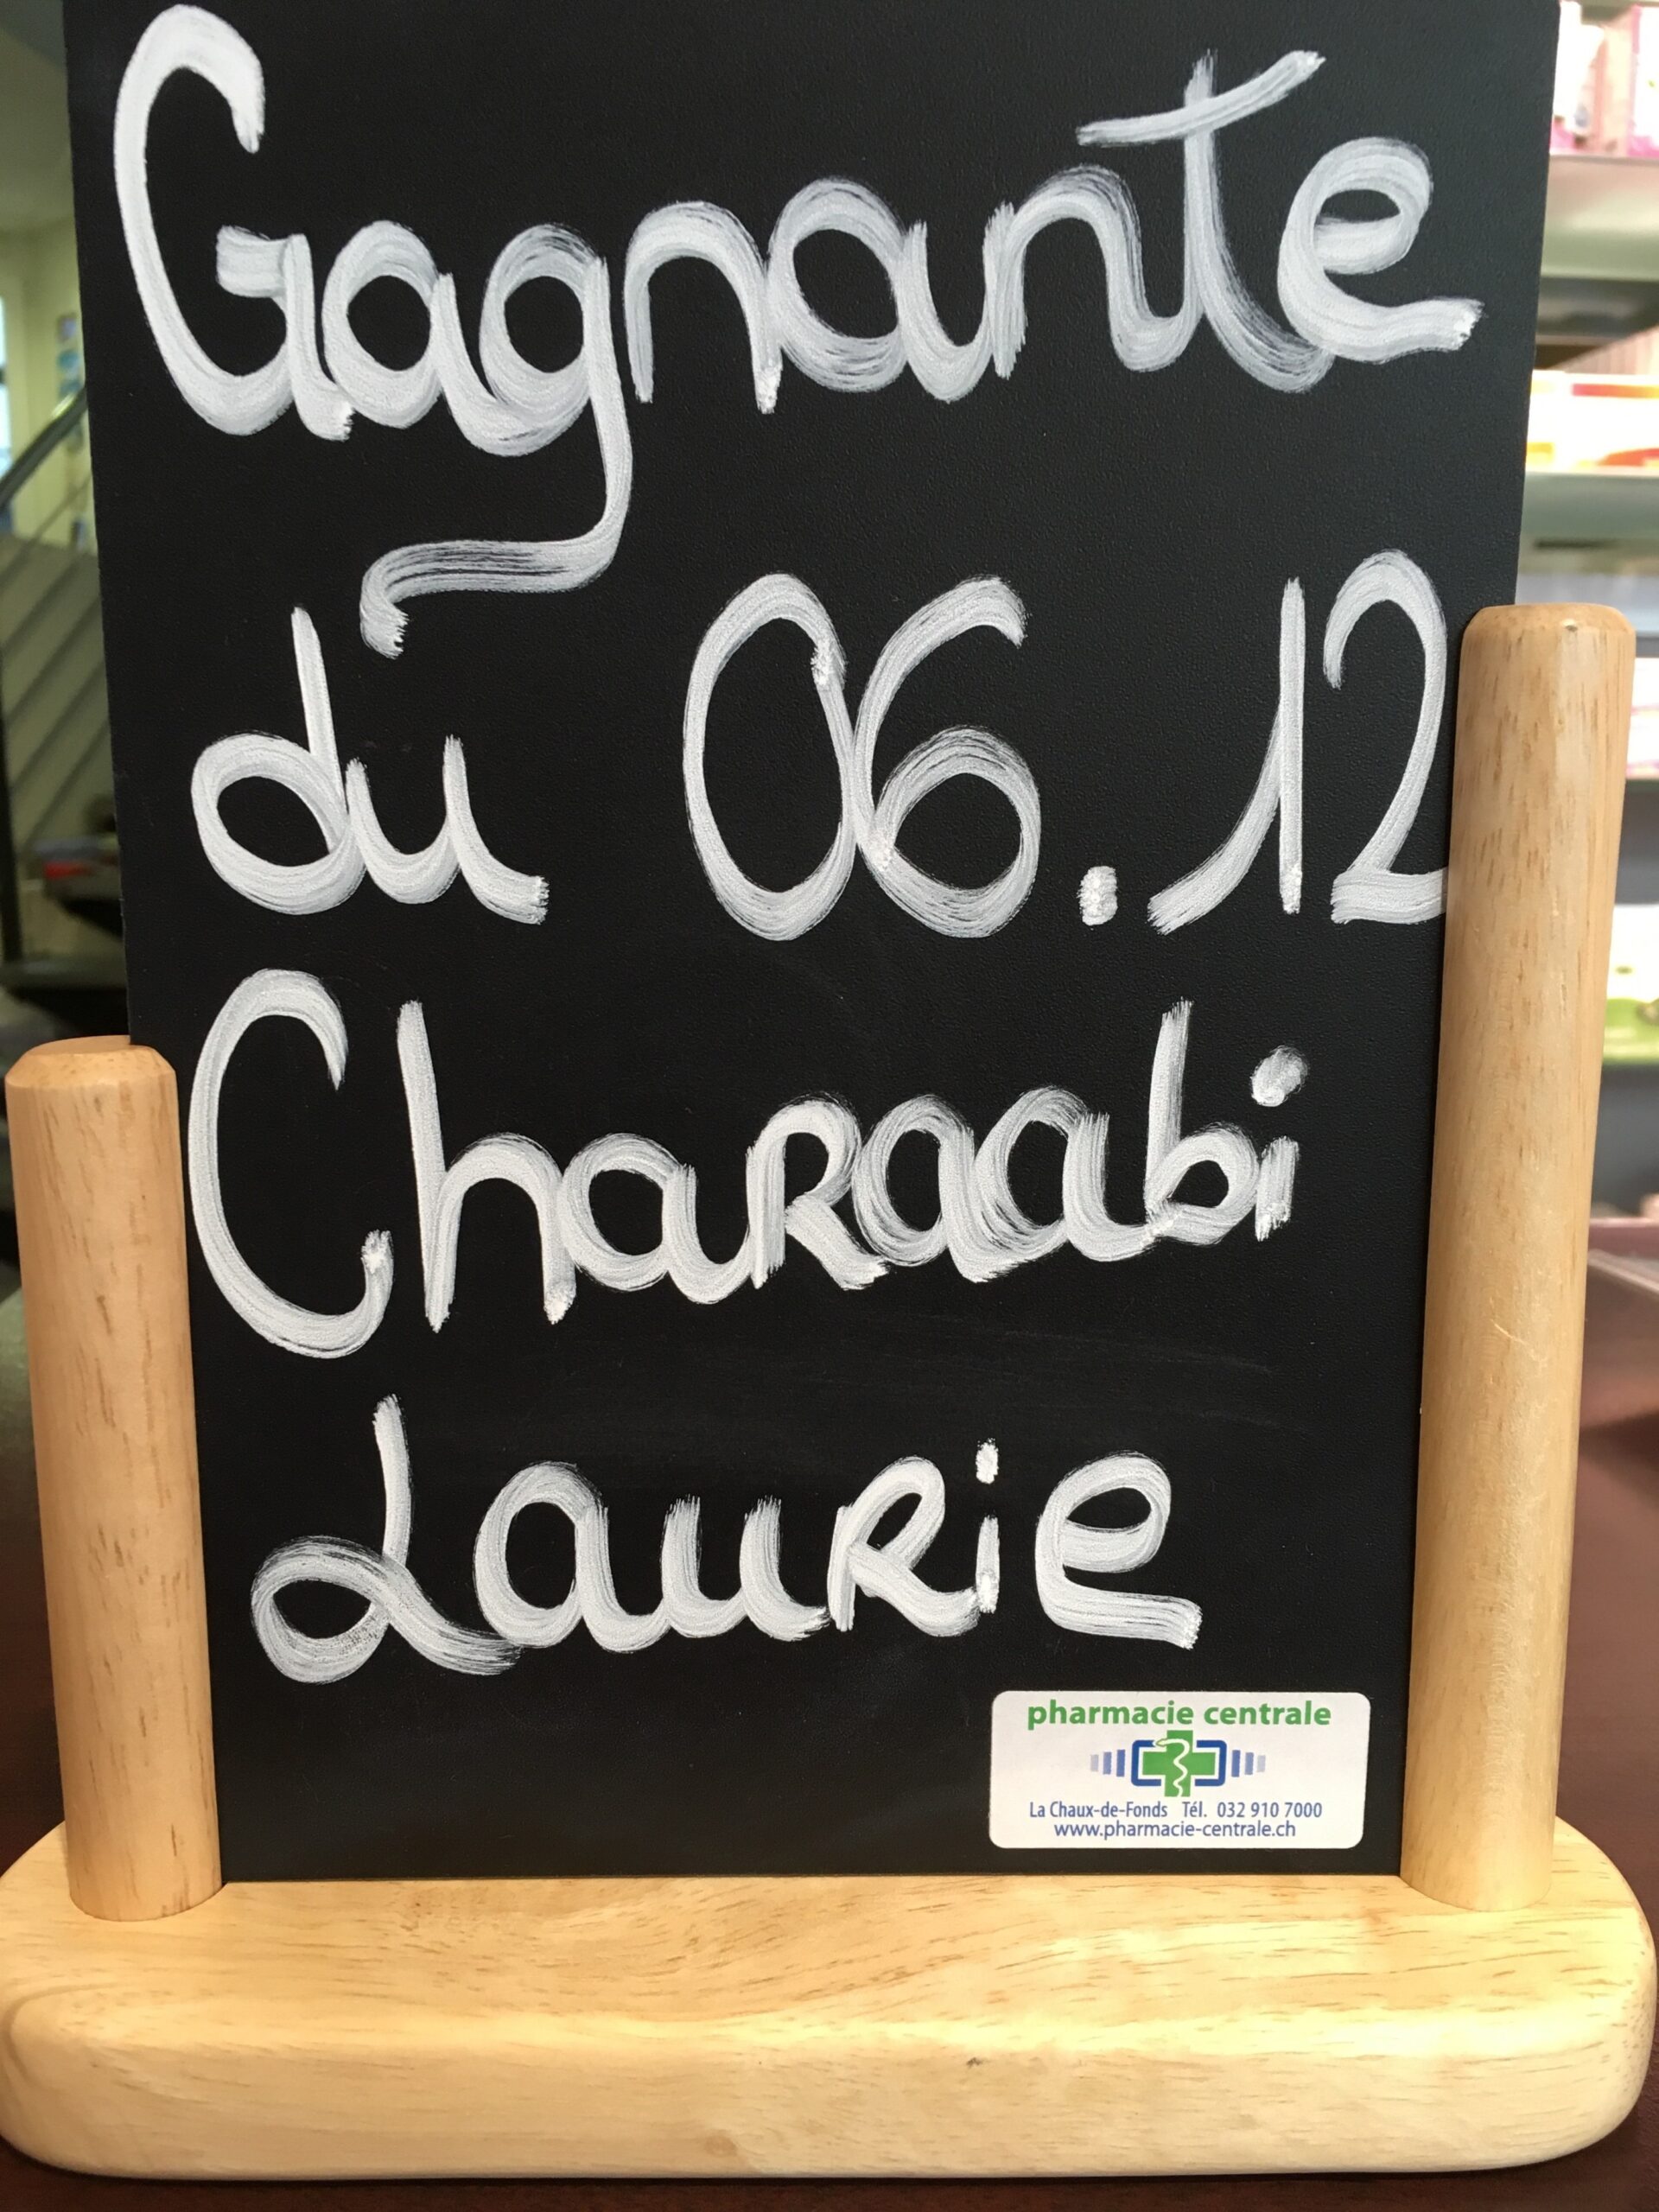 Gagnante
du 06.12
Charaabi
Laurie
pharmacie centrale
La Chaux-de-Fonds Tél. 032 910 7000
www.pharmacie-centrale.ch